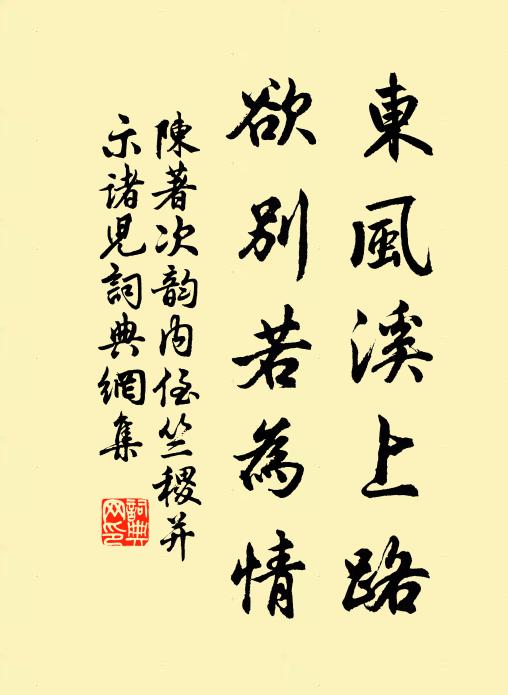 東風溪上路
欲別若為情
陳著次韵内侄竺稷并
示诸児詞典網集
詞典网印